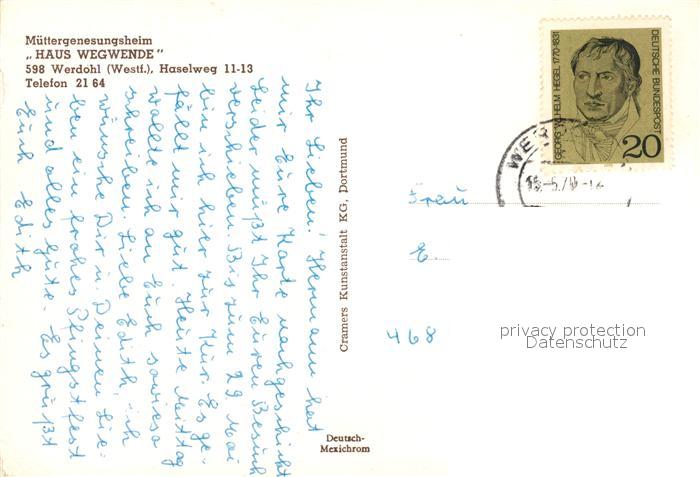 Müttergenesungsheim
„HAUS WEGWENDE"
598 Werdohl (Westf.), Haselweg 11-13
Telefon 21 64
Ihr Lieben! Hermann hat
mir Eure Karte nachgeschickt
Leider müßt Ihr Euren Besuch
verschieben. Bis zum 29. Mai
bin ich hier zur Kur. Es ge-
fällt mir gut. Heute Mittag
wollte ich an Euch sowieso
schreiben. Liebe Edith, ich
wünsche Dir u. Deinen Lie-
ben ein frohes Pfingstfest
und alles Gute. Es grüßt
Euch Edith
Cramers Kunstanstalt KG, Dortmund
Deutsch-
Mexichrom
GEORG WILHELM HEGEL 1770-1831
DEUTSCHE BUNDESPOST
20
WER
Frau
E.
468
privacy protection
Datenschutz